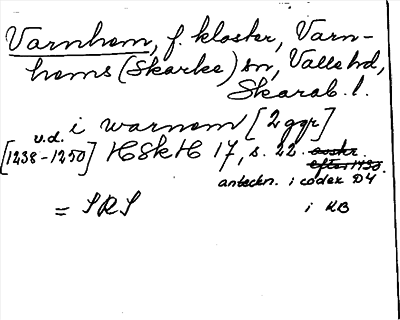 Varnhem, f. kloster, Varn-
hems (Skarke) sn, Valle hd,
Skarab. l.
i warnem [2 ggr]
v.d.
[1238-1250] HSkH 17, s. 22. avskr.
efter 1430.
anteckn. i codex D4
= SRS i KB